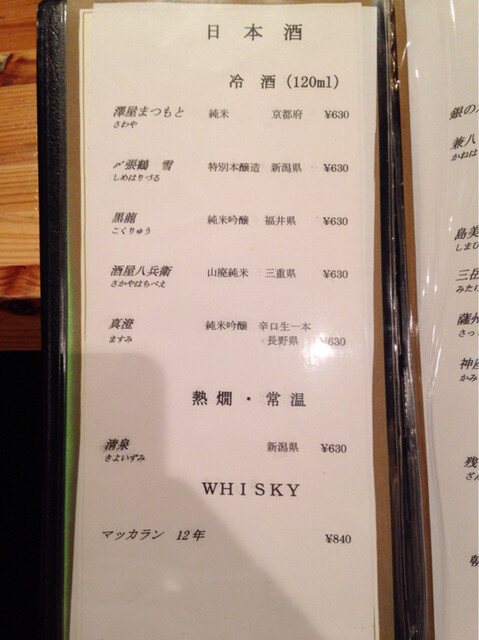 日本酒
冷酒(120ml)
澤屋まつもと 純米 京都府 ¥630
さわや
〆張鶴 雪 特別本醸造 新潟県 ¥630
しめはりづる
黒龍 純米吟醸 福井県 ¥630
こくりゅう
酒屋八兵衛 山廃純米 三重県 ¥630
さかやはちべえ
真澄 純米吟醸 辛口生一本
ますみ 長野県 ¥630
熱燗・常温
清泉 新潟県 ¥630
きよいずみ
WHISKY
マッカラン 12年 ¥840
銀の
兼八
かねは
島美
しまひ
三岳
みたけ
薩州
さっ
神座
かみ
残
ざん
朝